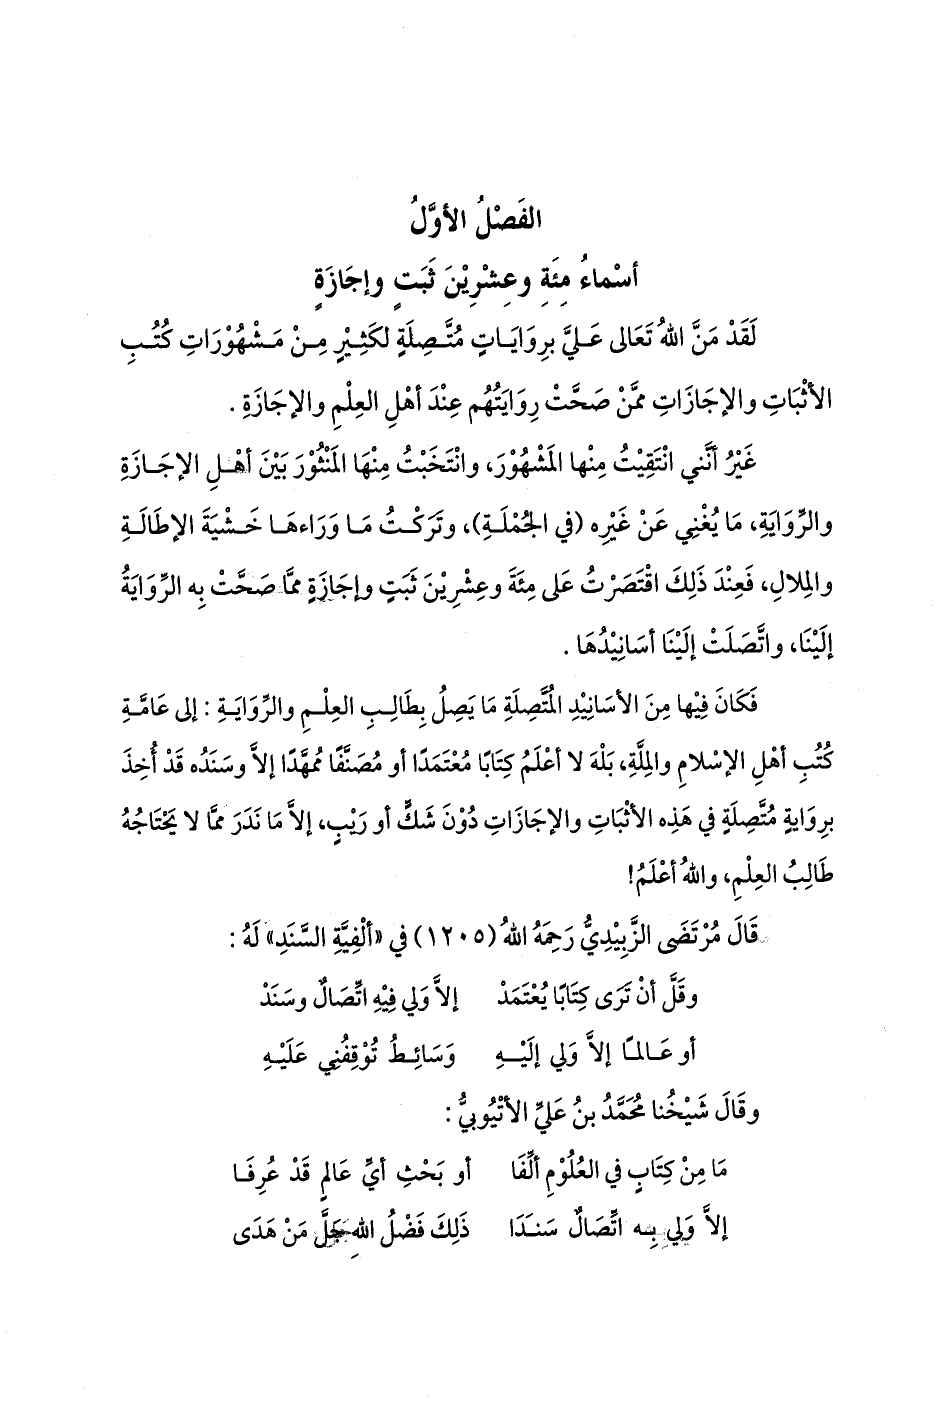 الفَصْلُ الأوَّلُ
أسْماءُ مِئَةِ وعِشْرِيْنَ ثَبَتٍ وإجَازَةٍ
لَقَدْ مَنَّ اللهُ تَعَالى عَليَّ بِرِوَايَاتٍ مُتَّصِلَةٍ لكَثِيْرٍ مِنْ مَشْهُوْرَاتِ كُتُبِ
الأثْبَاتِ والإجَازَاتِ ممَّنْ صَحَّتْ رِوَايَتُهُم عِنْدَ أهْلِ العِلْمِ والإجَازَةِ .
غَيْرُ أنَّني انْتَقِيْتُ مِنْها المَشْهُوْرَ، وانْتَخَبْتُ مِنْهَا المَنْثُوْرَ بَيْنَ أهْلِ الإجَازَةِ
والرِّوَايَةِ، مَا يُغْنِي عَنْ غَيْرِه (في الجُمْلَةِ)، وتَرَكْتُ مَا وَرَاءهَا خَشْيَةَ الإطَالَةِ
والمِلالِ، فَعِنْدَ ذَلِكَ اقْتَصَرْتُ عَلى مِئَةَ وعِشْرِيْنَ ثَبَتٍ وإجَازَةٍ ممَّا صَحَّتْ بِه الرِّوَايَةُ
إلَيْنَا، واتَّصَلَتْ إلَيْنَا أسَانِيْدُهَا .
فَكَانَ فِيْها مِنَ الأسَانِيْدِ المُتَّصِلَةِ مَا يَصِلُ بِطَالِبِ العِلْمِ والرِّوَايَةِ : إلى عَامَّةِ
كُتُبِ أهْلِ الإسْلامِ والمِلَّةِ، بَلْهَ لا أعْلَمُ كِتَابًا مُعْتَمَدًا أو مُصَنَّفًا ممُهَّدًا إلاَّ وسَنَدُه قَدْ أُخِذَ
بِرِوَايةٍ مُتَّصِلَةٍ في هَذِه الأثْبَاتِ والإجَازَاتِ دُوْنَ شَكٍّ أو رَيْبٍ، إلاَّ مَا نَدَرَ ممَّا لا يَحْتَاجُهُ
طَالِبُ العِلْمِ، واللهُ أعْلَمُ!
قَالَ مُرْتَضَى الزَّبِيْدِيُّ رَحِمَهُ اللهُ (١٢٠٥) في «ألْفِيَّةِ السَّنَدِ» لَهُ :
وقَلَّ أنْ تَرَى كِتَابًا يُعْتَمَدْ إلاَّ وَلي فِيْهِ اتِّصَالٌ وسَنَدْ
أو عَالمًا إلاَّ وَلي إلَيْهِ وَسَائِطُ تُوْقِفُنِي عَلَيْهِ
وقَالَ شَيْخُنا محُمَّدُ بنُ عَليٍّ الأتْيُوبيُّ :
مَا مِنْ كِتَابٍ في العُلُوْمِ ألِّفَا أو بَحْثِ أيِّ عَالمٍ قَدْ عُرِفَا
إلاَّ وَلي بِه اتِّصَالٌ سَنَدَا ذَلِكَ فَضْلُ اللهِ جَلَّ مَنْ هَدَى